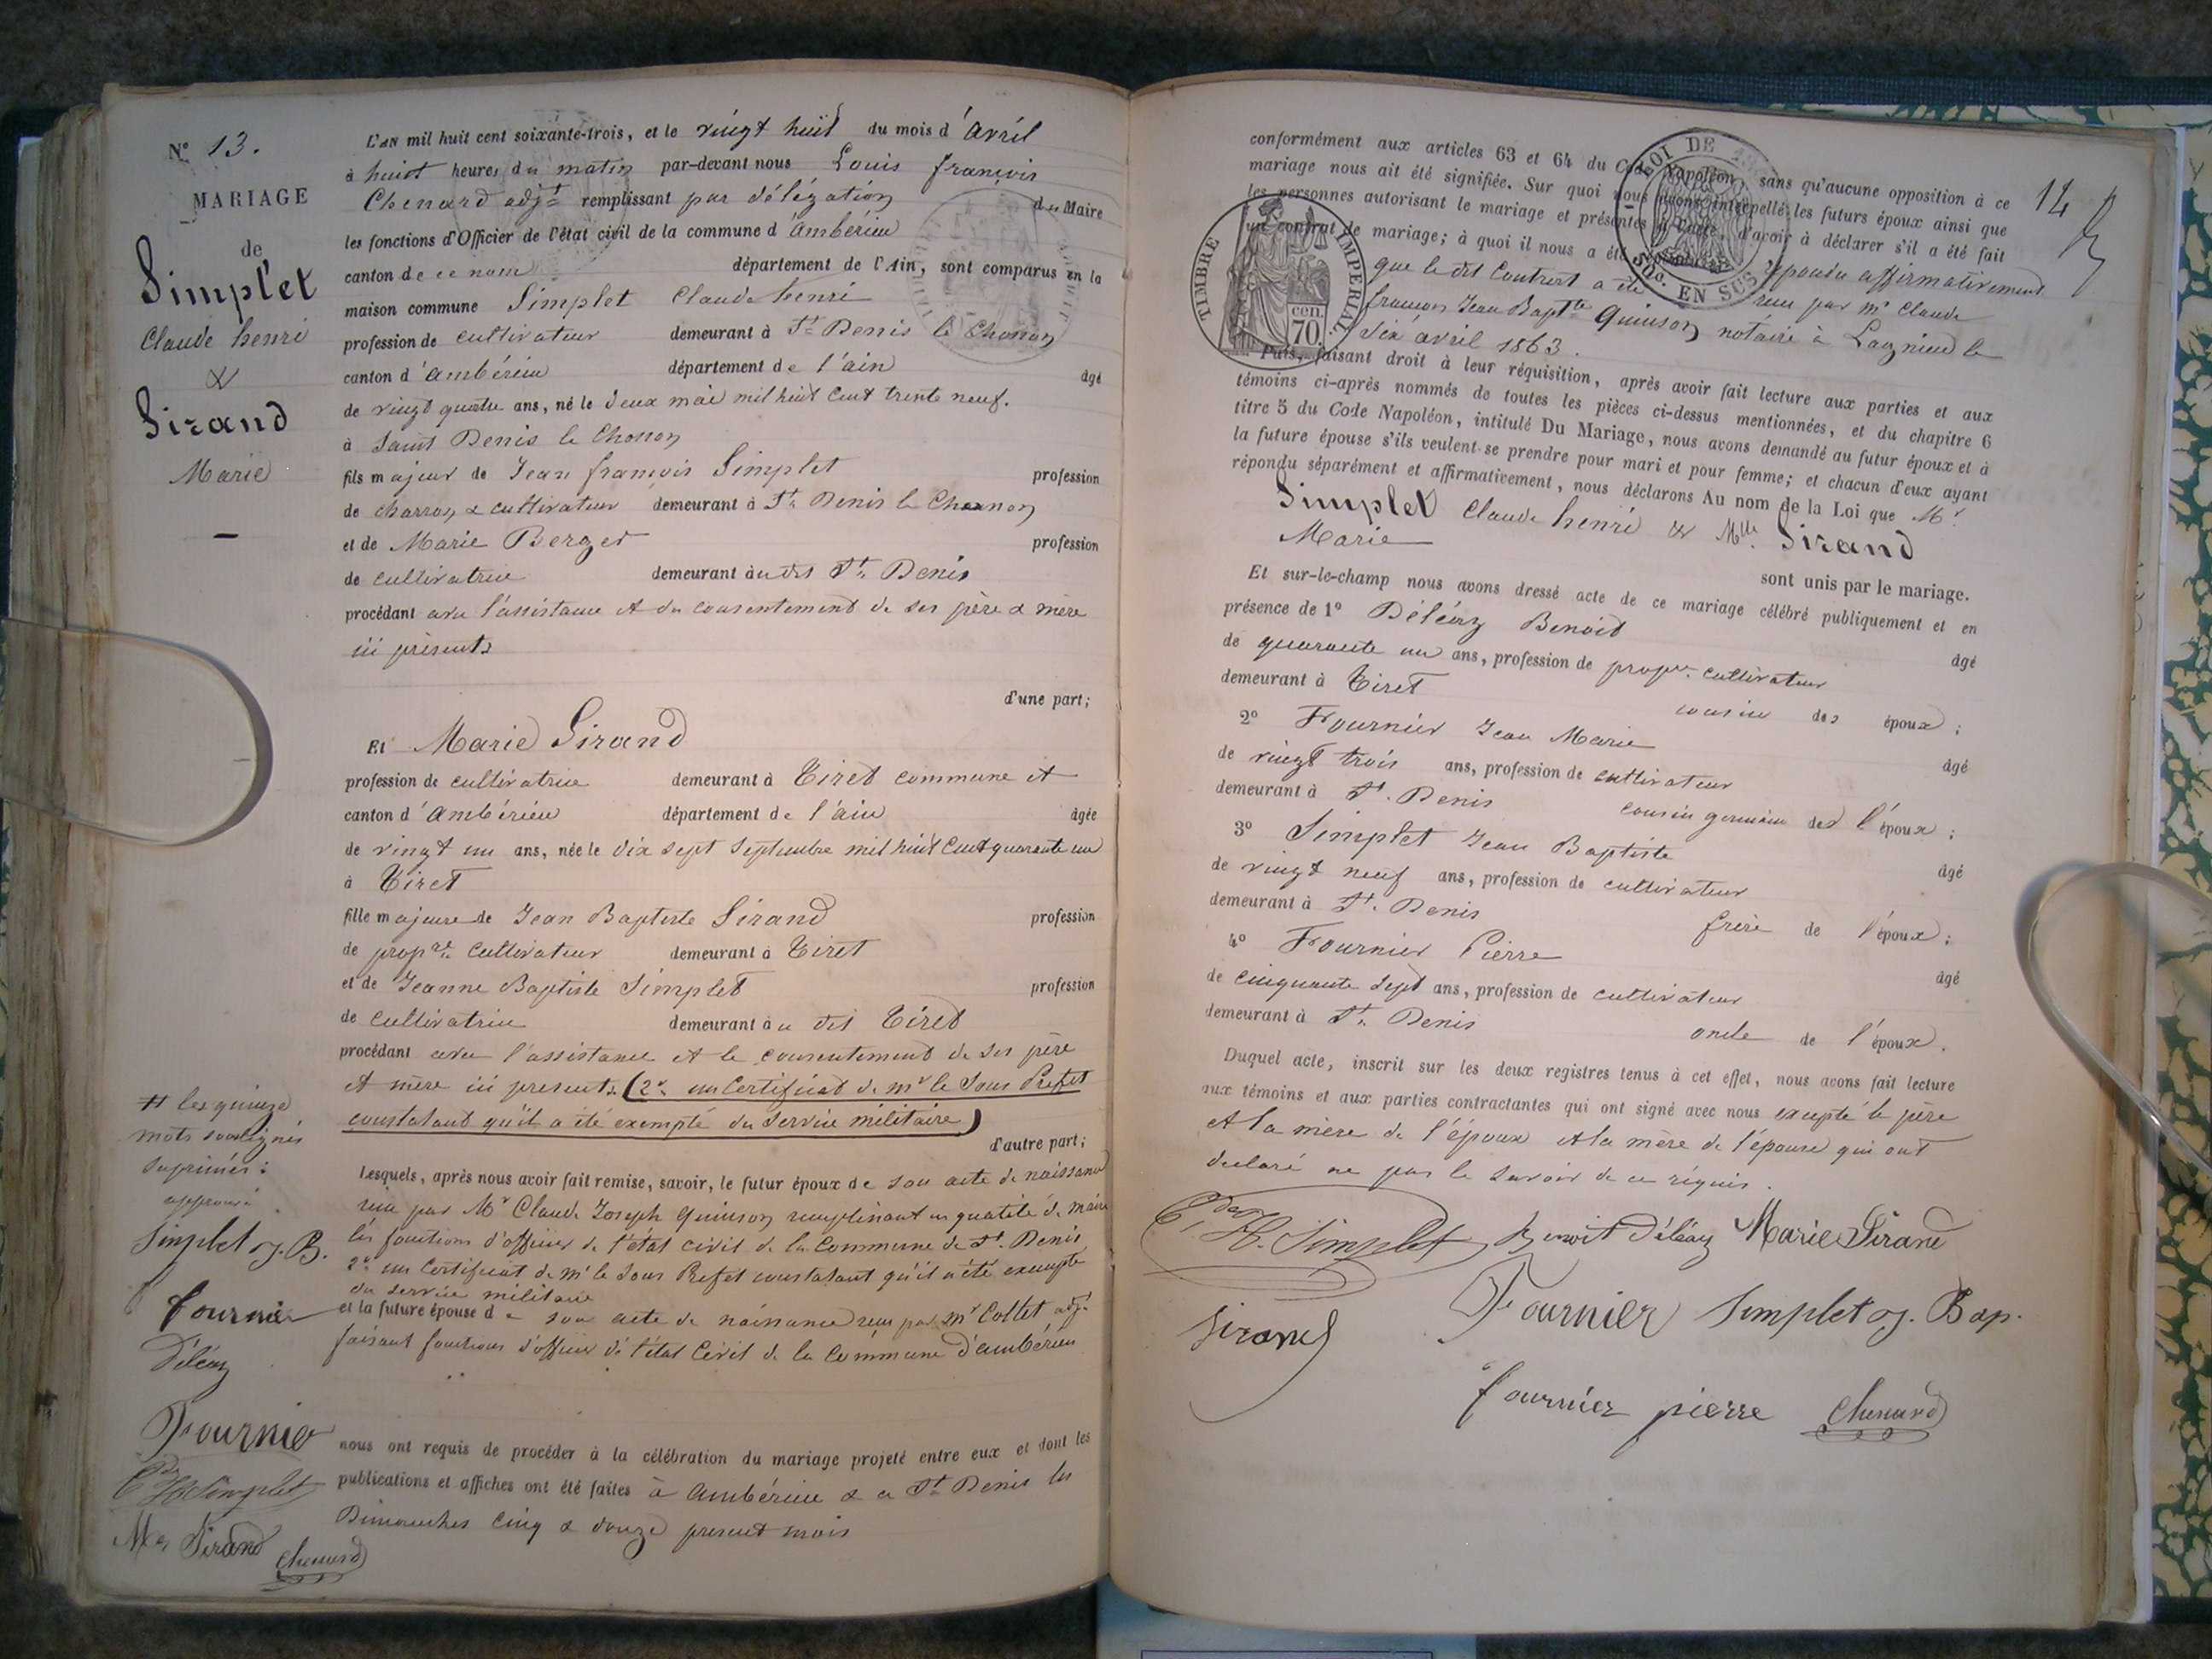 N° 13.
MARIAGE
de
Simplet
Claude henri
&
Sirand
Marie
L'AN mil huit cent soixante-trois, et le vingt huit du mois d'avril
à huit heures du matin par-devant nous Louis françois
Chenard adjt remplissant par délégation du Maire
les fonctions d'Officier de l'état civil de la commune d'ambérieu
canton de ce nom département de l'Ain, sont comparus en la
maison commune Simplet Claude henri
profession de cultivateur demeurant à St Denis le Chosson
canton d'ambérieu département de l'ain âgé
de vingt quatre ans, né le deux mai mil huit cent trente neuf.
à Saint Denis le Chosson
fils majeur de Jean françois Simplet profession
de charron & cultivateur demeurant à St Denis le Chosson
et de Marie Berger profession
de cultivatrice demeurant au dit St Denis
procédant avec l'assistance et du consentement de ses père & mère
ici présents
d'une part;
Et Marie Sirand
profession de cultivatrice demeurant à Tiret commune et
canton d'ambérieu département de l'ain âgée
de vingt un ans, née le dix sept Septembre mil huit cent quarante un
à Tiret
fille majeure de Jean Baptiste Sirand profession
de propre cultivateur demeurant à Tiret
et de Jeanne Baptiste Simplet profession
de cultivatrice demeurant au dit Tiret
procédant avec l'assistance et le consentement de ses père
et mère ici présents (2° un Certificat de mr le Sous Préfet
constatant qu'il a été exempté du service militaire)
d'autre part;
# les quinze
mots soulignés
suprimés:
approuvé
Simplet J. B.
fournier
Déléaz
Fournier
Cde H Simplet
Mie Sirand Chenard
Lesquels, après nous avoir fait remise, savoir, le futur époux de son acte de naissance
reçu par Mr Claude Joseph Quinson remplissant en qualité de maire
les fonctions d'officier de l'état civil de la Commune de St. Denis
2° un certificat de mr le Sous Préfet constatant qu'il a été exempté
du service militaire
et la future épouse de son acte de naissance reçu par mr Collet adjt
faisant fonctions d'officier de l'état civil de la commune d'ambérieu
nous ont requis de procéder à la célébration du mariage projeté entre eux et dont les
publications et affiches ont été faites à ambérieu & a St Denis les
Dimanches cinq & douze present mois
14
conformément aux articles 63 et 64 du Code Napoléon, sans qu'aucune opposition à ce
mariage nous ait été signifiée. Sur quoi nous avons interpellé les futurs époux ainsi que
les personnes autorisant le mariage et présentes à l'acte, d'avoir à déclarer s'il a été fait
un contrat de mariage; à quoi il nous a été répondu affirmativement
que le dit Contrat a été reçu par mr Claude
françois Jean Bapte Quinson notaire à Lagnieu le
dix avril 1863.
TIMBRE IMPERIAL
cen.
70.
LOI DE
50c. EN SUS
Puis, faisant droit à leur réquisition, après avoir fait lecture aux parties et aux
témoins ci-après nommés de toutes les pièces ci-dessus mentionnées, et du chapitre 6
titre 5 du Code Napoléon, intitulé Du Mariage, nous avons demandé au futur époux et à
la future épouse s'ils veulent se prendre pour mari et pour femme; et chacun d'eux ayant
répondu séparément et affirmativement, nous déclarons Au nom de la Loi que Mr.
Simplet Claude henri & Mlle Sirand
Marie
sont unis par le mariage.
Et sur-le-champ nous avons dressé acte de ce mariage célébré publiquement et en
présence de 1° Déléaz Benoit âgé
de quarante un ans, profession de propre cultivateur
demeurant à Tiret cousin des époux;
2° Fournier Jean Marie âgé
de vingt trois ans, profession de cultivateur
demeurant à St. Denis cousin germain de l'époux;
3° Simplet Jean Baptiste âgé
de vingt neuf ans, profession de cultivateur
demeurant à St. Denis frère de l'époux;
4° Fournier Pierre âgé
de cinquante sept ans, profession de cultivateur
demeurant à St. Denis oncle de l'époux.
Duquel acte, inscrit sur les deux registres tenus à cet effet, nous avons fait lecture
aux témoins et aux parties contractantes qui ont signé avec nous excepté le père
et la mère de l'époux et la mère de l'épouse qui ont
declaré ne pas le savoir de ce réquis.
Cde H. Simplet Benoit Déléaz Marie Sirand
Sirand Fournier Simplet J. Bap.
fournier pierre Chenard